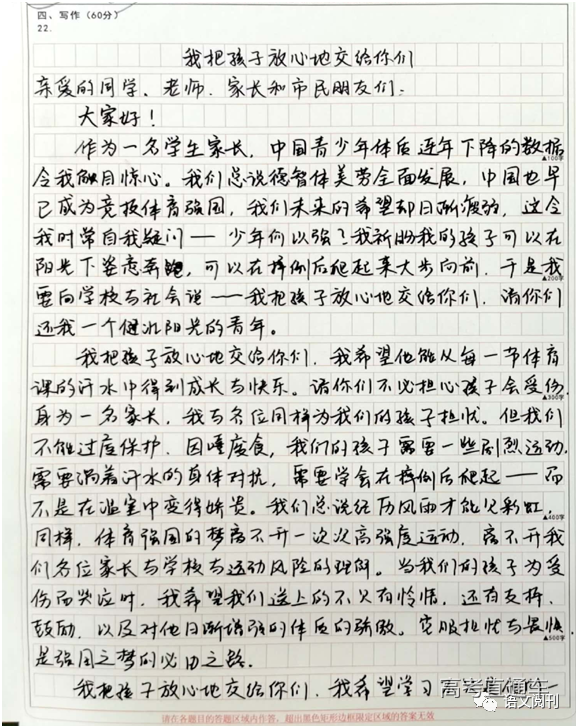 四、写作（60分）
22.
我把孩子放心地交给你们
亲爱的同学、老师、家长和市民朋友们：
大家好！
作为一名学生家长，中国青少年体质连年下降的数据
▲100字
令我触目惊心。我们总说德智体美劳全面发展，中国也早
已成为竞技体育强国，我们未来的希望却日渐疲弱，这令
我时常自我疑问——少年何以强？我新盼我的孩子可以在
阳光下姿态奔跑，可以在摔倒后爬起来大步向前，于是我
▲200字
要向学校与社会说——我把孩子放心地交给你们，请你们
还我一个健壮阳光的青年。
我把孩子放心地交给你们，我希望他能从每一节体育
课的汗水中得到成长与快乐。请你们不必担心孩子会受伤，
▲300字
身为一名家长，我与各位同样为我们的孩子担忧。但我们
不能过度保护，因噎废食，我们的孩子需要一些剧烈运动，
需要淌着汗水的身体对抗，需要学会在摔倒后爬起——而
不是在温室中变得娇贵。我们总说经历风雨才能见彩虹，
▲400字
同样，体育强国的梦离不开一次次高强度运动，离不开我
们各位家长与学校与运动风险的理解。当我们的孩子为受
伤而哭泣时，我希望我们送上的不只有怜惜，还有支持、
鼓励，以及对他日渐增强的体质的骄傲。克服担忧与畏惧，
▲500字
是强国之梦的必由之路。
我把孩子放心地交给你们，我希望学习
请在各题目的答题区域内作答，超出黑色矩形边框限定区域的答案无效
高考直通车
语文阅刊